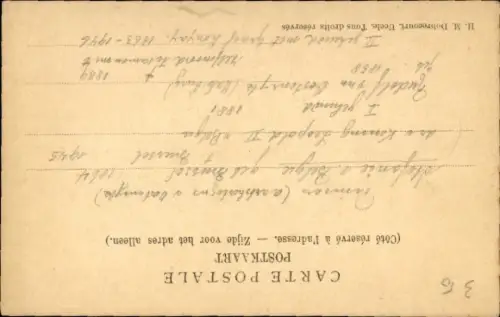 CARTE POSTALE
POSTKAART
(Côté réservé à l'adresse. — Zijde voor het adres alleen.)
Prinses (aartshertogin v Oostenrijk)
Stefanie v. België geb Brussel 1864
† Brussel 1945
dr v Koning Leopold II v België
I gehuwd 1881
Rudolf van Oostenrijk (Habsburg)
geb. 1858 † 1889
zelfmoord
II gehuwd met graaf Lonyay. 1863-1946
H. M. Uccle. Tous droits réservés
3 B